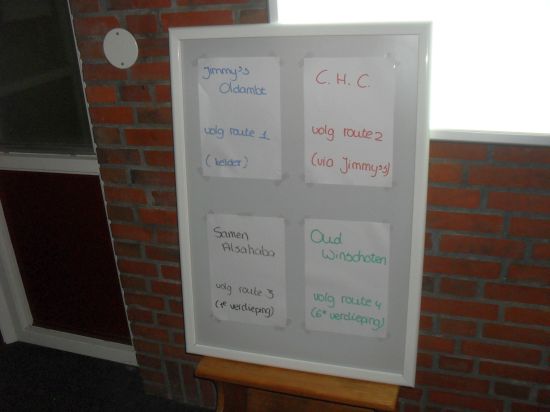 Jimmy's
Oldambt
volg route 1
(kelder)
C. H. C.
volg route 2
(via Jimmy's)
Samen
Alsahaba
volg route 3
(1e verdieping)
Oud
Winschoten
volg route 4
(6e verdieping)